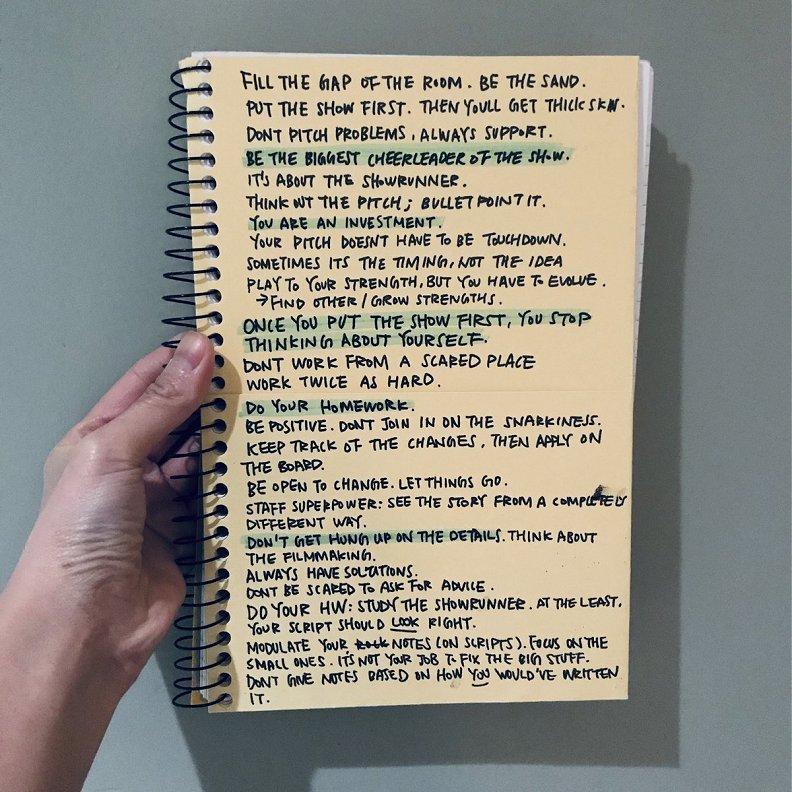 FILL THE GAP OF THE ROOM. BE THE SAND.
PUT THE SHOW FIRST. THEN YOULL GET THICK SKIN.
DONT PITCH PROBLEMS, ALWAYS SUPPORT.
BE THE BIGGEST CHEERLEADER OF THE SHOW.
IT'S ABOUT THE SHOWRUNNER.
THINK OUT THE PITCH; BULLET POINT IT.
YOU ARE AN INVESTMENT.
YOUR PITCH DOESNT HAVE TO BE TOUCHDOWN.
SOMETIMES ITS THE TIMING, NOT THE IDEA
PLAY TO YOUR STRENGTH, BUT YOU HAVE TO EVOLVE.
→FIND OTHER/GROW STRENGTHS.
ONCE YOU PUT THE SHOW FIRST, YOU STOP
THINKING ABOUT YOURSELF.
DONT WORK FROM A SCARED PLACE
WORK TWICE AS HARD.
DO YOUR HOMEWORK.
BE POSITIVE. DONT JOIN IN ON THE SNARKINESS.
KEEP TRACK OF THE CHANGES, THEN APPLY ON
THE BOARD.
BE OPEN TO CHANGE. LET THINGS GO.
STAFF SUPERPOWER: SEE THE STORY FROM A COMPLETELY
DIFFERENT WAY.
DON'T GET HUNG UP ON THE DETAILS. THINK ABOUT
THE FILMMAKING.
ALWAYS HAVE SOLUTATIONS.
DONT BE SCARED TO ASK FOR ADVICE.
DO YOUR HW: STUDY THE SHOWRUNNER. AT THE LEAST,
YOUR SCRIPT SHOULD LOOK RIGHT.
MODULATE YOUR NOTES (ON SCRIPTS). FOCUS ON THE
SMALL ONES. IT'S NOT YOUR JOB TO FIX THE BIG STUFF.
DONT GIVE NOTES BASED ON HOW YOU WOULD'VE WRITTEN
IT.